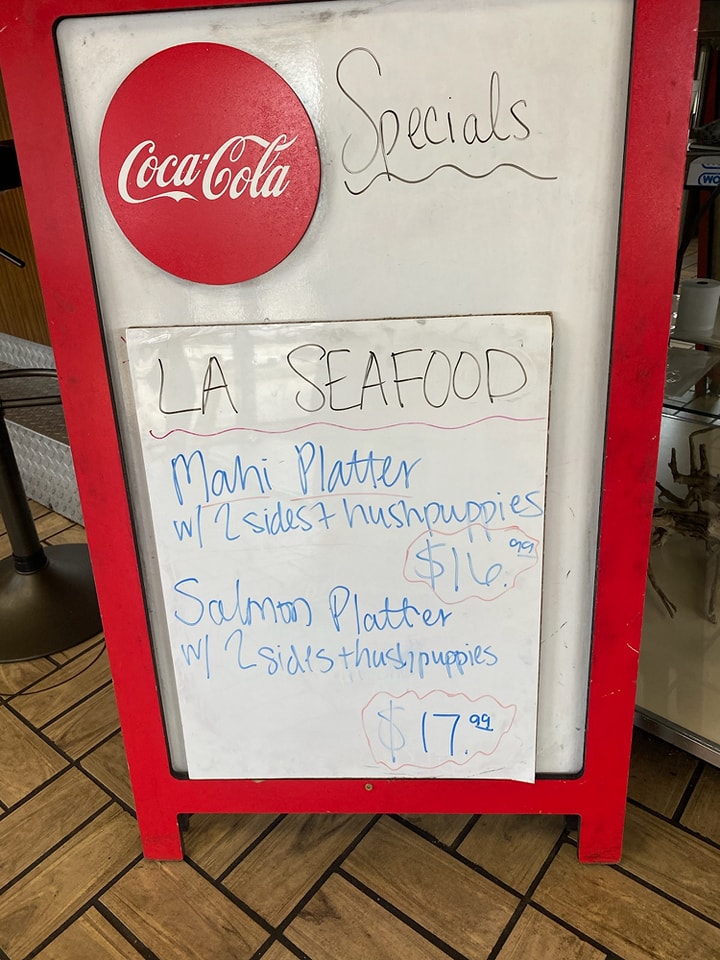 Coca-Cola
Specials
LA SEAFOOD
Mahi Platter
w/ 2 sides + hushpuppies
$16.99
Salmon Platter
w/ 2 sides + hushpuppies
$17.99